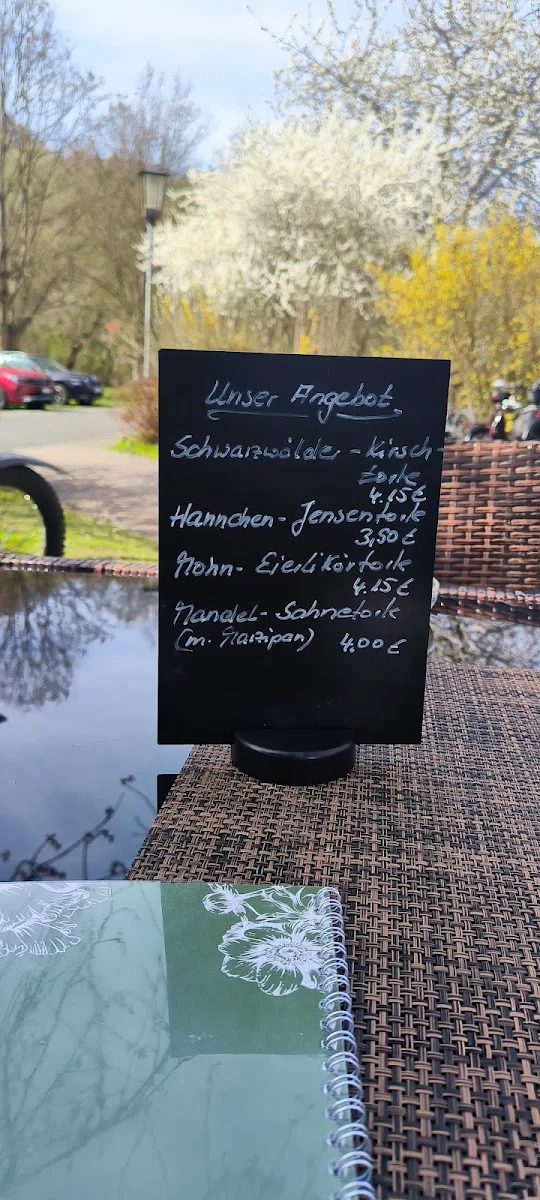 Unser Angebot
Schwarzwälder-Kirsch-
torte
4.15€
Hannchen-Jensentorte
3,50€
Mohn- Eierlikörtorte
4.15€
Mandel-Sahnetorte
(m. Marzipan) 4.00€